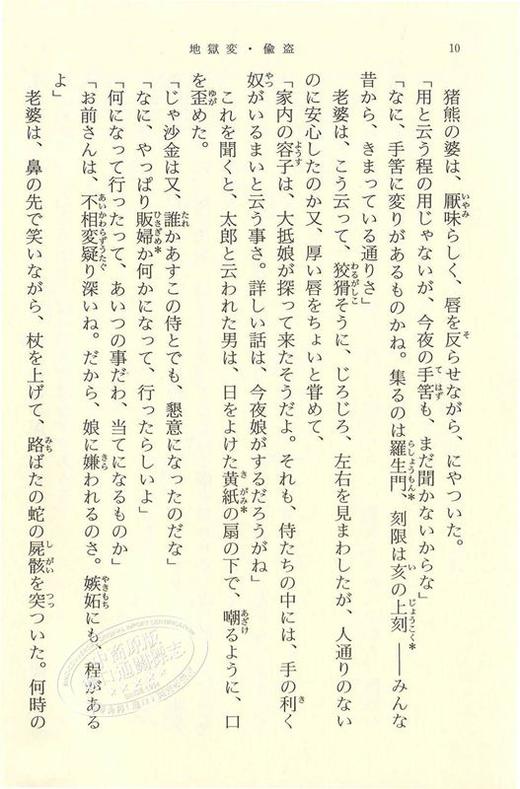 地獄変・偸盗
10
猪熊の婆は、厭味らしく、唇を反らせながら、にやついた。
「用と云う程の用じゃないが、今夜の手筈も、まだ聞かないからな」
「なに、手筈に変りがあるものかね。集るのは羅生門、刻限は亥の上刻――みんな
昔から、きまっている通りさ」
老婆は、こう云って、狡猾そうに、じろじろ、左右を見まわしたが、人通りのない
のに安心したのか又、厚い唇をちょいと甞めて、
「家内の容子は、大抵娘が探って来たそうだよ。それも、侍たちの中には、手の利く
奴がいるまいと云う事さ。詳しい話は、今夜娘がするだろうがね」
これを聞くと、太郎と云われた男は、日をよけた黄紙の扇の下で、嘲るように、口
を歪めた。
「じゃ沙金は又、誰かあすこの侍とでも、懇意になったのだな」
「なに、やっぱり販婦か何かになって、行ったらしいよ」
「何になって行ったって、あいつの事だわ、当てになるものか」
「お前さんは、不相変疑り深いね。だから、娘に嫌われるのさ。嫉妬にも、程がある
よ」
老婆は、鼻の先で笑いながら、杖を上げて、路ばたの蛇の屍骸を突ついた。何時の